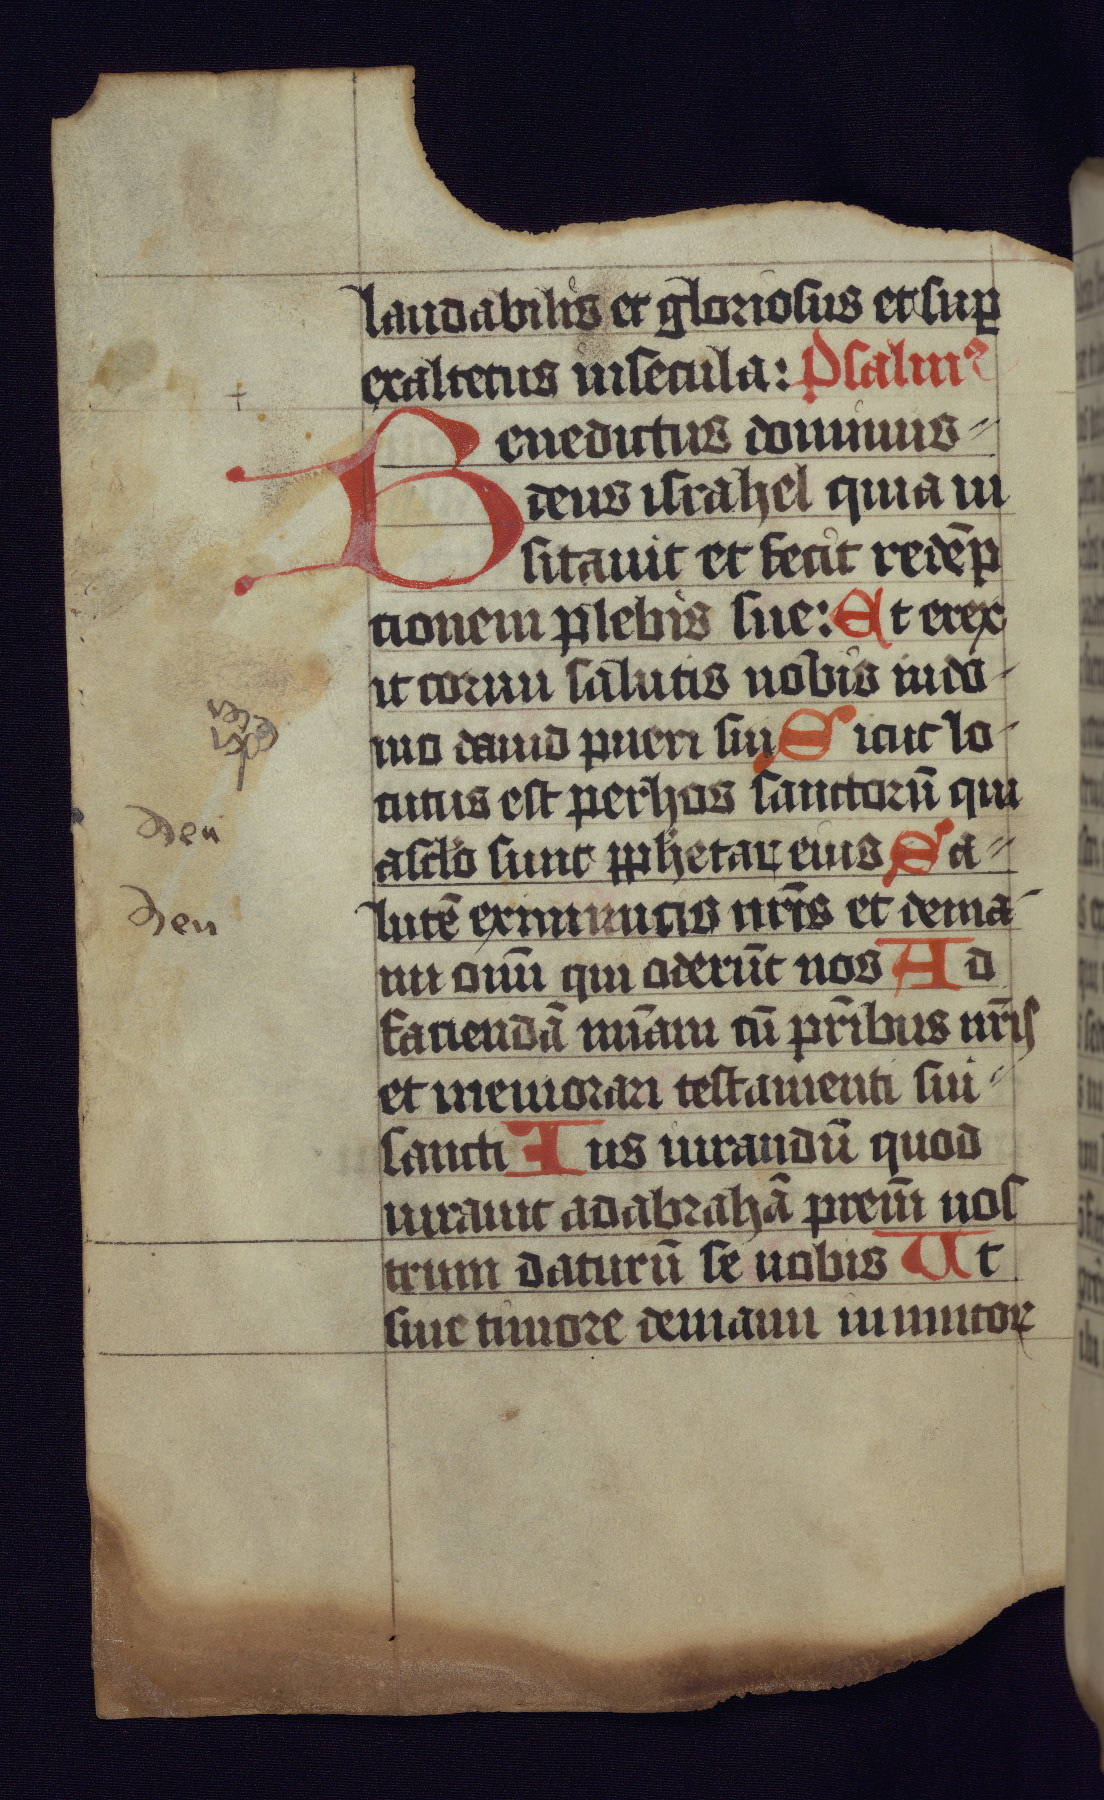 laudabilis et gloriosus et sup
exaltetus insecula: Psalmꝰ
Benedictus dominus
deus israhel quia ui
sitauit et fecit redēp
tionem plebis sue: Et erex
it cornu salutis nobis indo
mo dauid pueri sui Sicut lo
cutus est perhos sanctorū qui
asclo sunt ꝓphetaꝝ eius Sa
lutē exinimicis nr̄is et dema
nu om̄i qui oderūt nos Ad
faciendā mīam cū pr̄ibus nr̄is
et memorari testamenti sui
sancti Ius iurandū quod
iurauit adabrahā prem̄ nos
trum daturū se nobis Ut
sine timore demanu inimicoꝝ
den
den